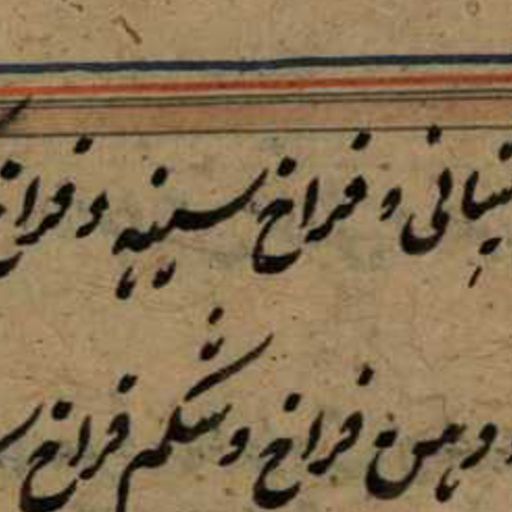 و فراخ سینه و فراخ
و دهن فراخ و شکم فراخ